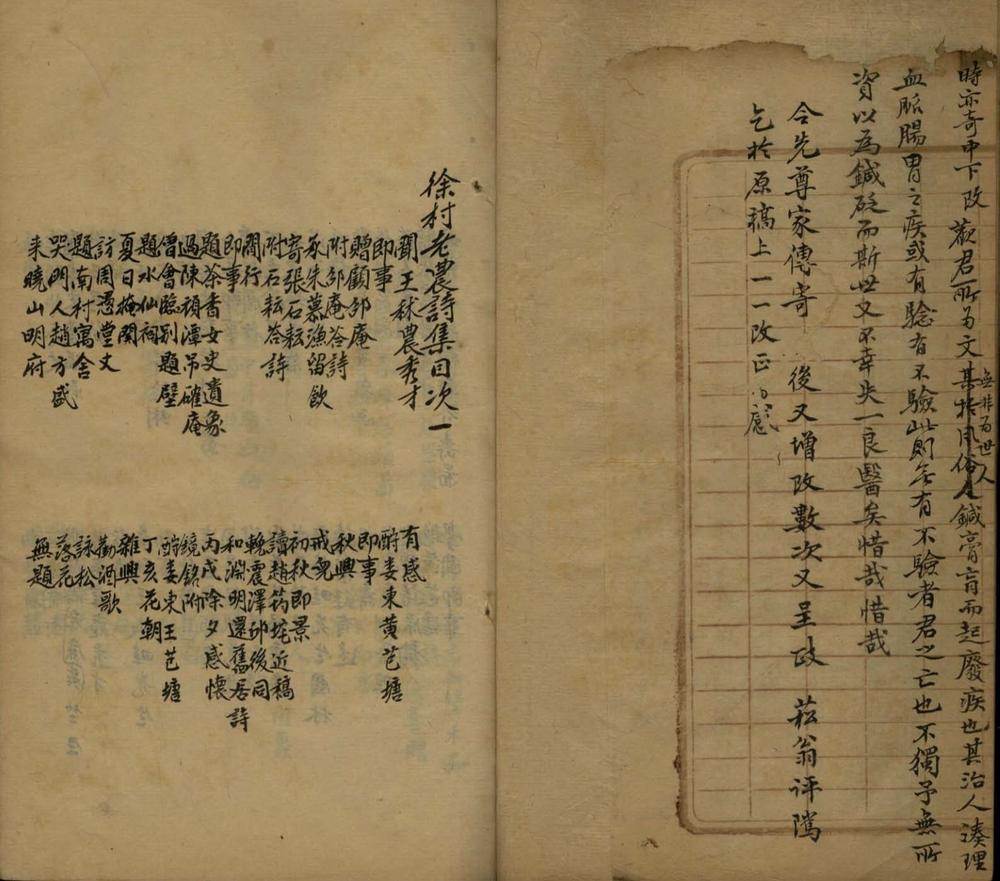 時亦奇中下改嶔君所为文某於風俗人鍼膏肓而起廢疾也其治人湊理
無非为世人
血脈腸胃之疾或有驗有不驗此則無有不驗者君之亡也不獨予無所
資以為鍼砭而斯世又不幸失一良醫矣惜哉惜哉
令先尊家傳寄 後又增改數次又呈政 菘翁评隲
乞於原稿上一一改正为感
徐村老農詩集目次一
聞王秫農秀才
即事
贈顧邰庵
附邰庵答詩
永朱慕漁留飲
寄張石耘
附石耘答詩
閒行
即事
題茶香女史遺象
過陳頑潭吊確庵
僧會臨別題壁
題水仙祠
夏日掩關
訪周憑堂丈
題南村寓舍
哭門人趙方盛
来曉山明府
有感
酧婁東黄芑塘
即事
秋興
戒兒
初秋即景
讀趙筠垞近稿
輓震澤邱後同
和淵明還舊居詩
丙戌除夕感懷
鏡銘附
酧婁東王芑塘
丁亥花朝
雜興
勸酒歌
詠松
落花
無題